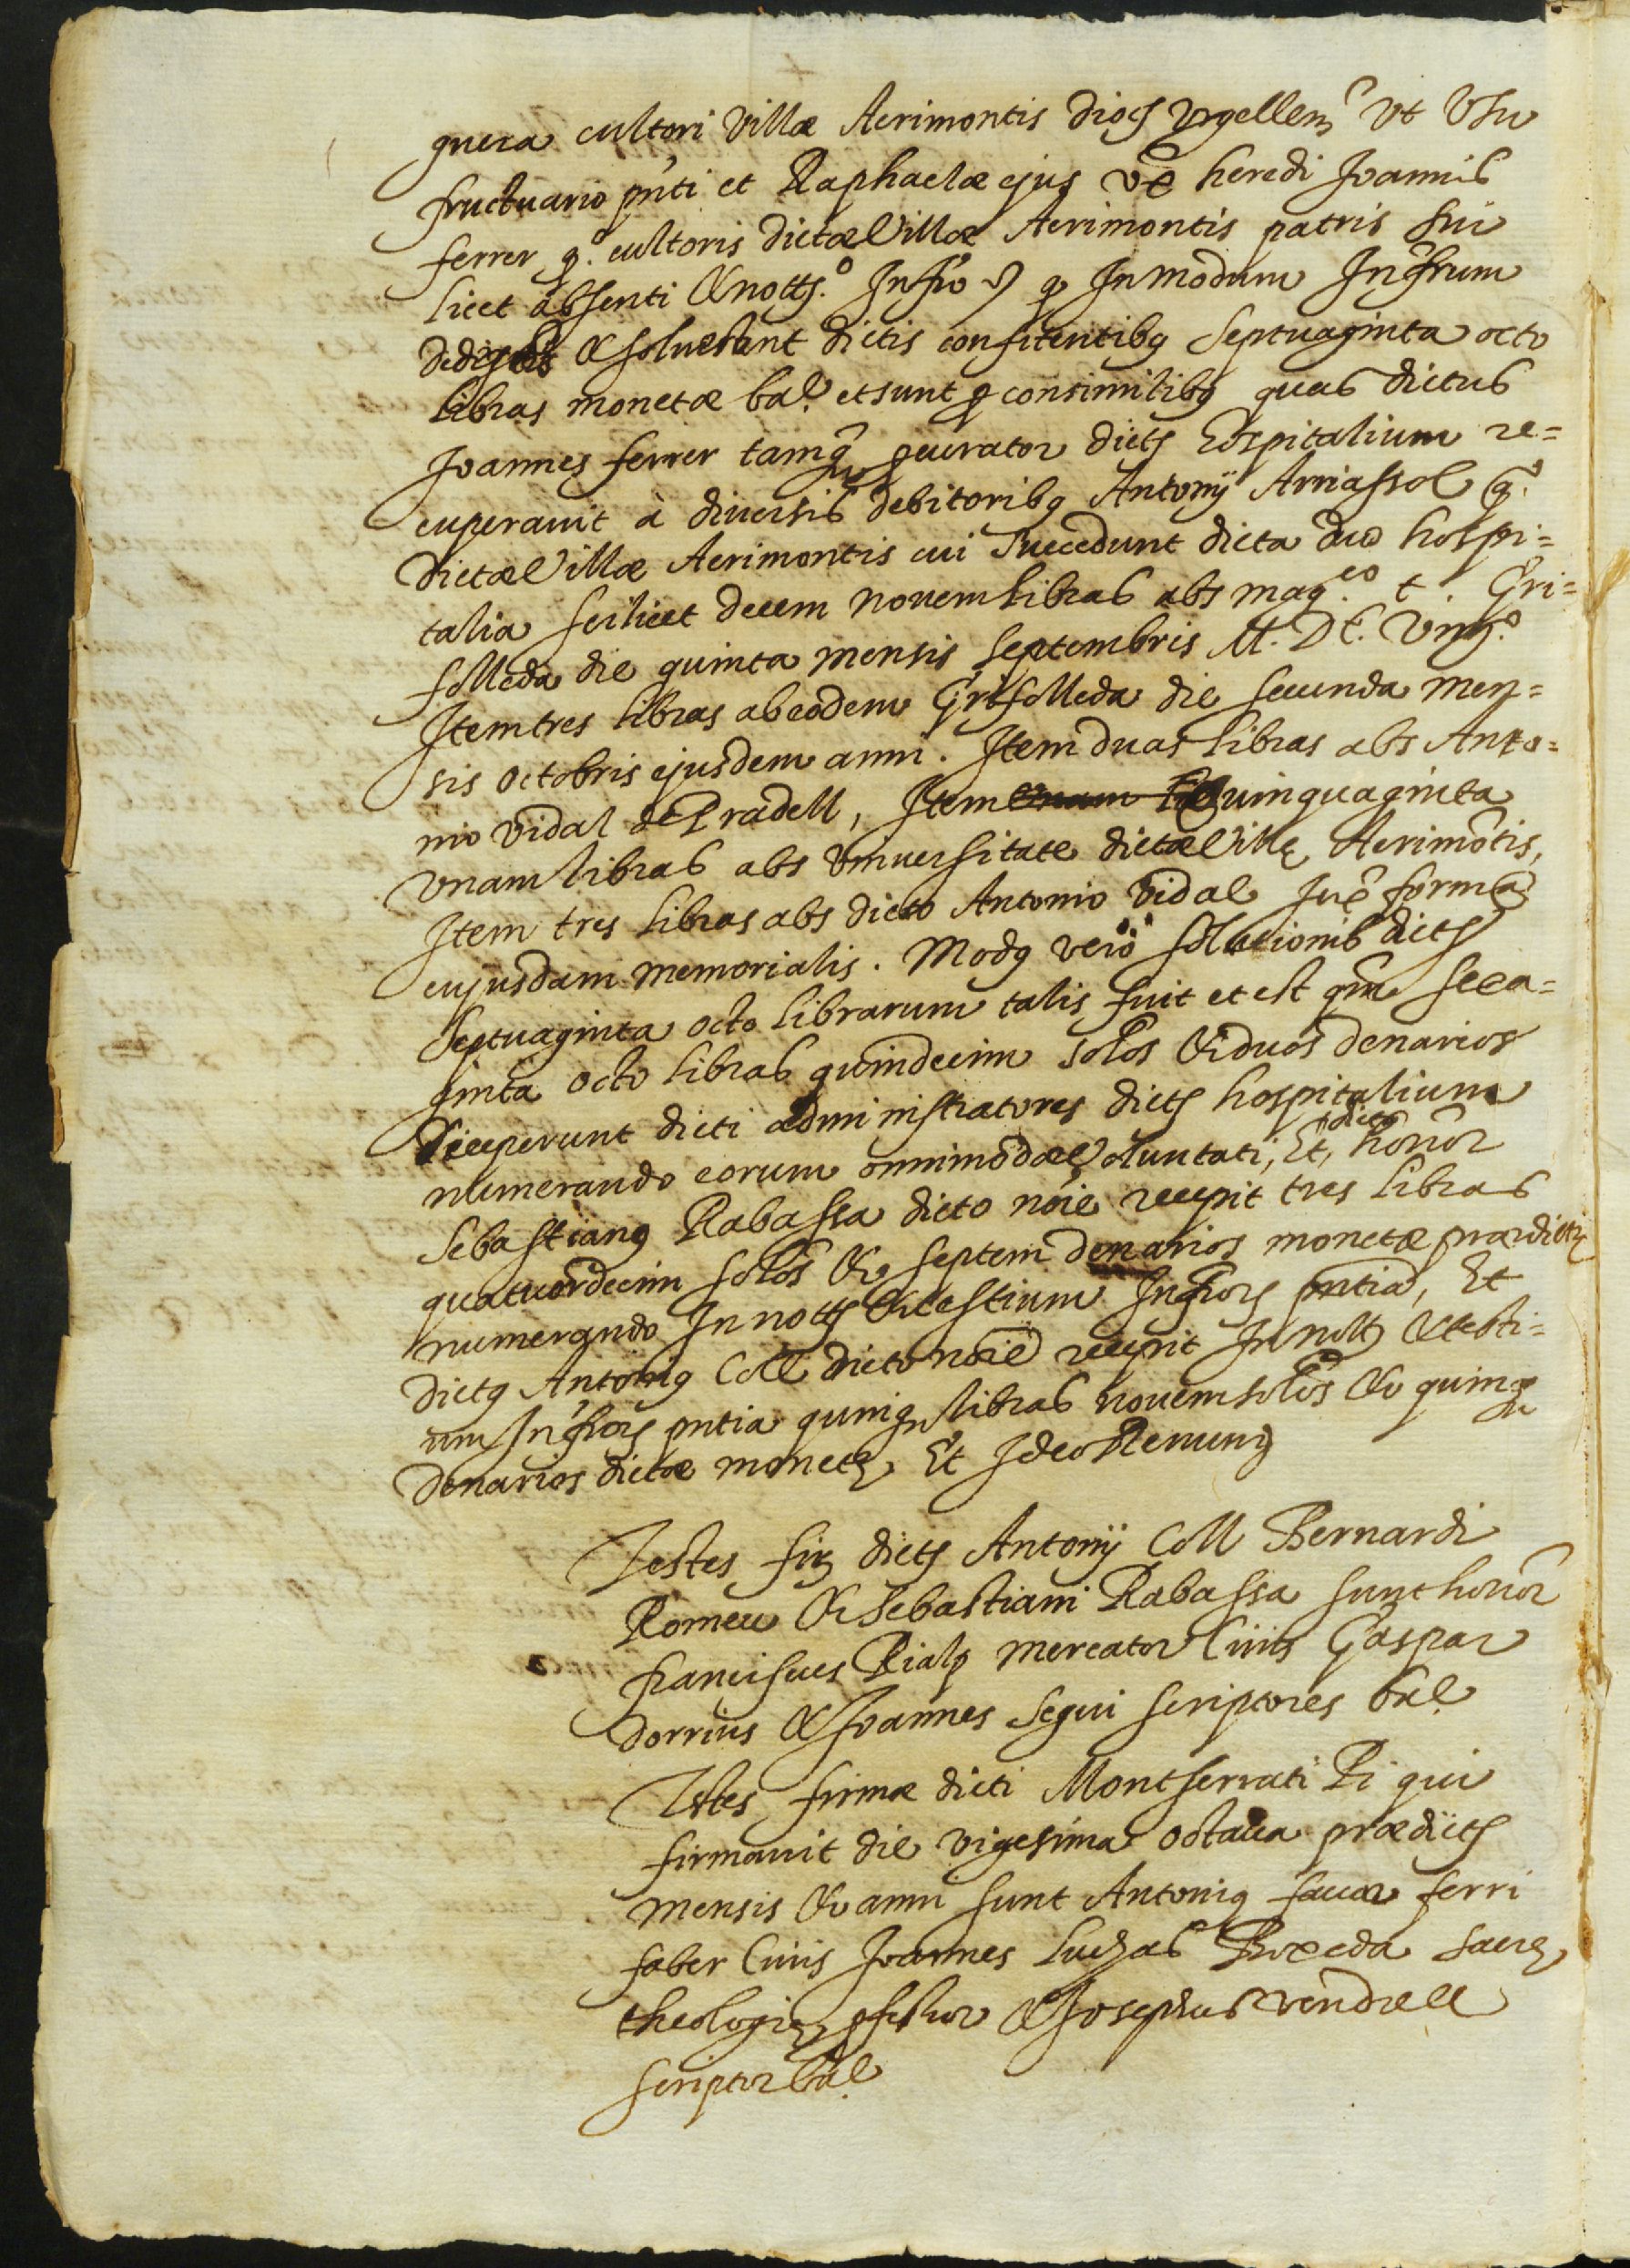 guera cultori Villæ Acrimontis dioc̃ Vrgellen̄ vt Vsu
fructuario pñti et Raphaelæ ejus vx̄ heredi Joannis
ferrer q.º cultoris dictæ Villæ Acrimontis patris sui
licet absenti & nott.º Infr̃o per In modum Infr̃um
& soluerunt dictis confitentibus septuaginta octo
libras monetæ bar̄. et sunt per consimilibus quas dictus
Joannes ferrer tamq̃ procurator dictȝ hospitalium re=
cuperauit à diuersis debitoribus Antonij Arniassol q.º
dictæ Villæ Acrimontis cui succedunt dicta duo hospi=
talia scilicet decem nouem libras abs mag.co t. Gri=
solleda die quinta mensis septembris M. Dc. Vng.º
Item tres libras ab eodem Grisolleda die secunda men=
sis octobris ejusdem anni. Item duas libras abs Anto=
nio Vidal de Pradell, Item quinquaginta
vnam libras abs Vniuersitate dictæ Villę Acrimõtis,
Item tres libras abs dicto Antonio Vidal Jux̄ forma
cujusdam memorialis. Modus vero solutionis dictȝ
septuaginta octo librarum talis fuit et est qm̄ sexa=
ginta octo libras quindecim solos & duos denarios
Receperunt dicti administratores dictȝ hospitalium
numerando eorum omnimodæ Voluntati, Et, dictus honor̄
Sebastianus Rabassa dicto nõie recepit tres libras
quatuordecim solos & septem denarios monetæ prædictæ
numerando In nottȝ & testium Infr̃orȝ pñtia, Et
dictus Antonius Coll dicto nõie recepit In nottȝ & testi=
um Infr̃orȝ pntia quinq̃ libras nouem solos & quinq̃
denarios dictæ monetę, Et Ideo Renunȝ
Testes firȝ dictȝ Antonij Coll Bernardi
Romeu & Sebastiani Rabassa sunt honor̄
franciscus Rialp mercator Ciuis Gaspar
dorrius & Joannes Segui scriptores bar̄
Testes firmæ dicti Montserrati Pi qui
firmauit die vigesima octaua prædictȝ
mensis & anni sunt Antonius facor ferri
faber Ciuis Joannes Luchas Boxeda sacrę
theologię professor & Josephus Vendrell
scriptor bar̄